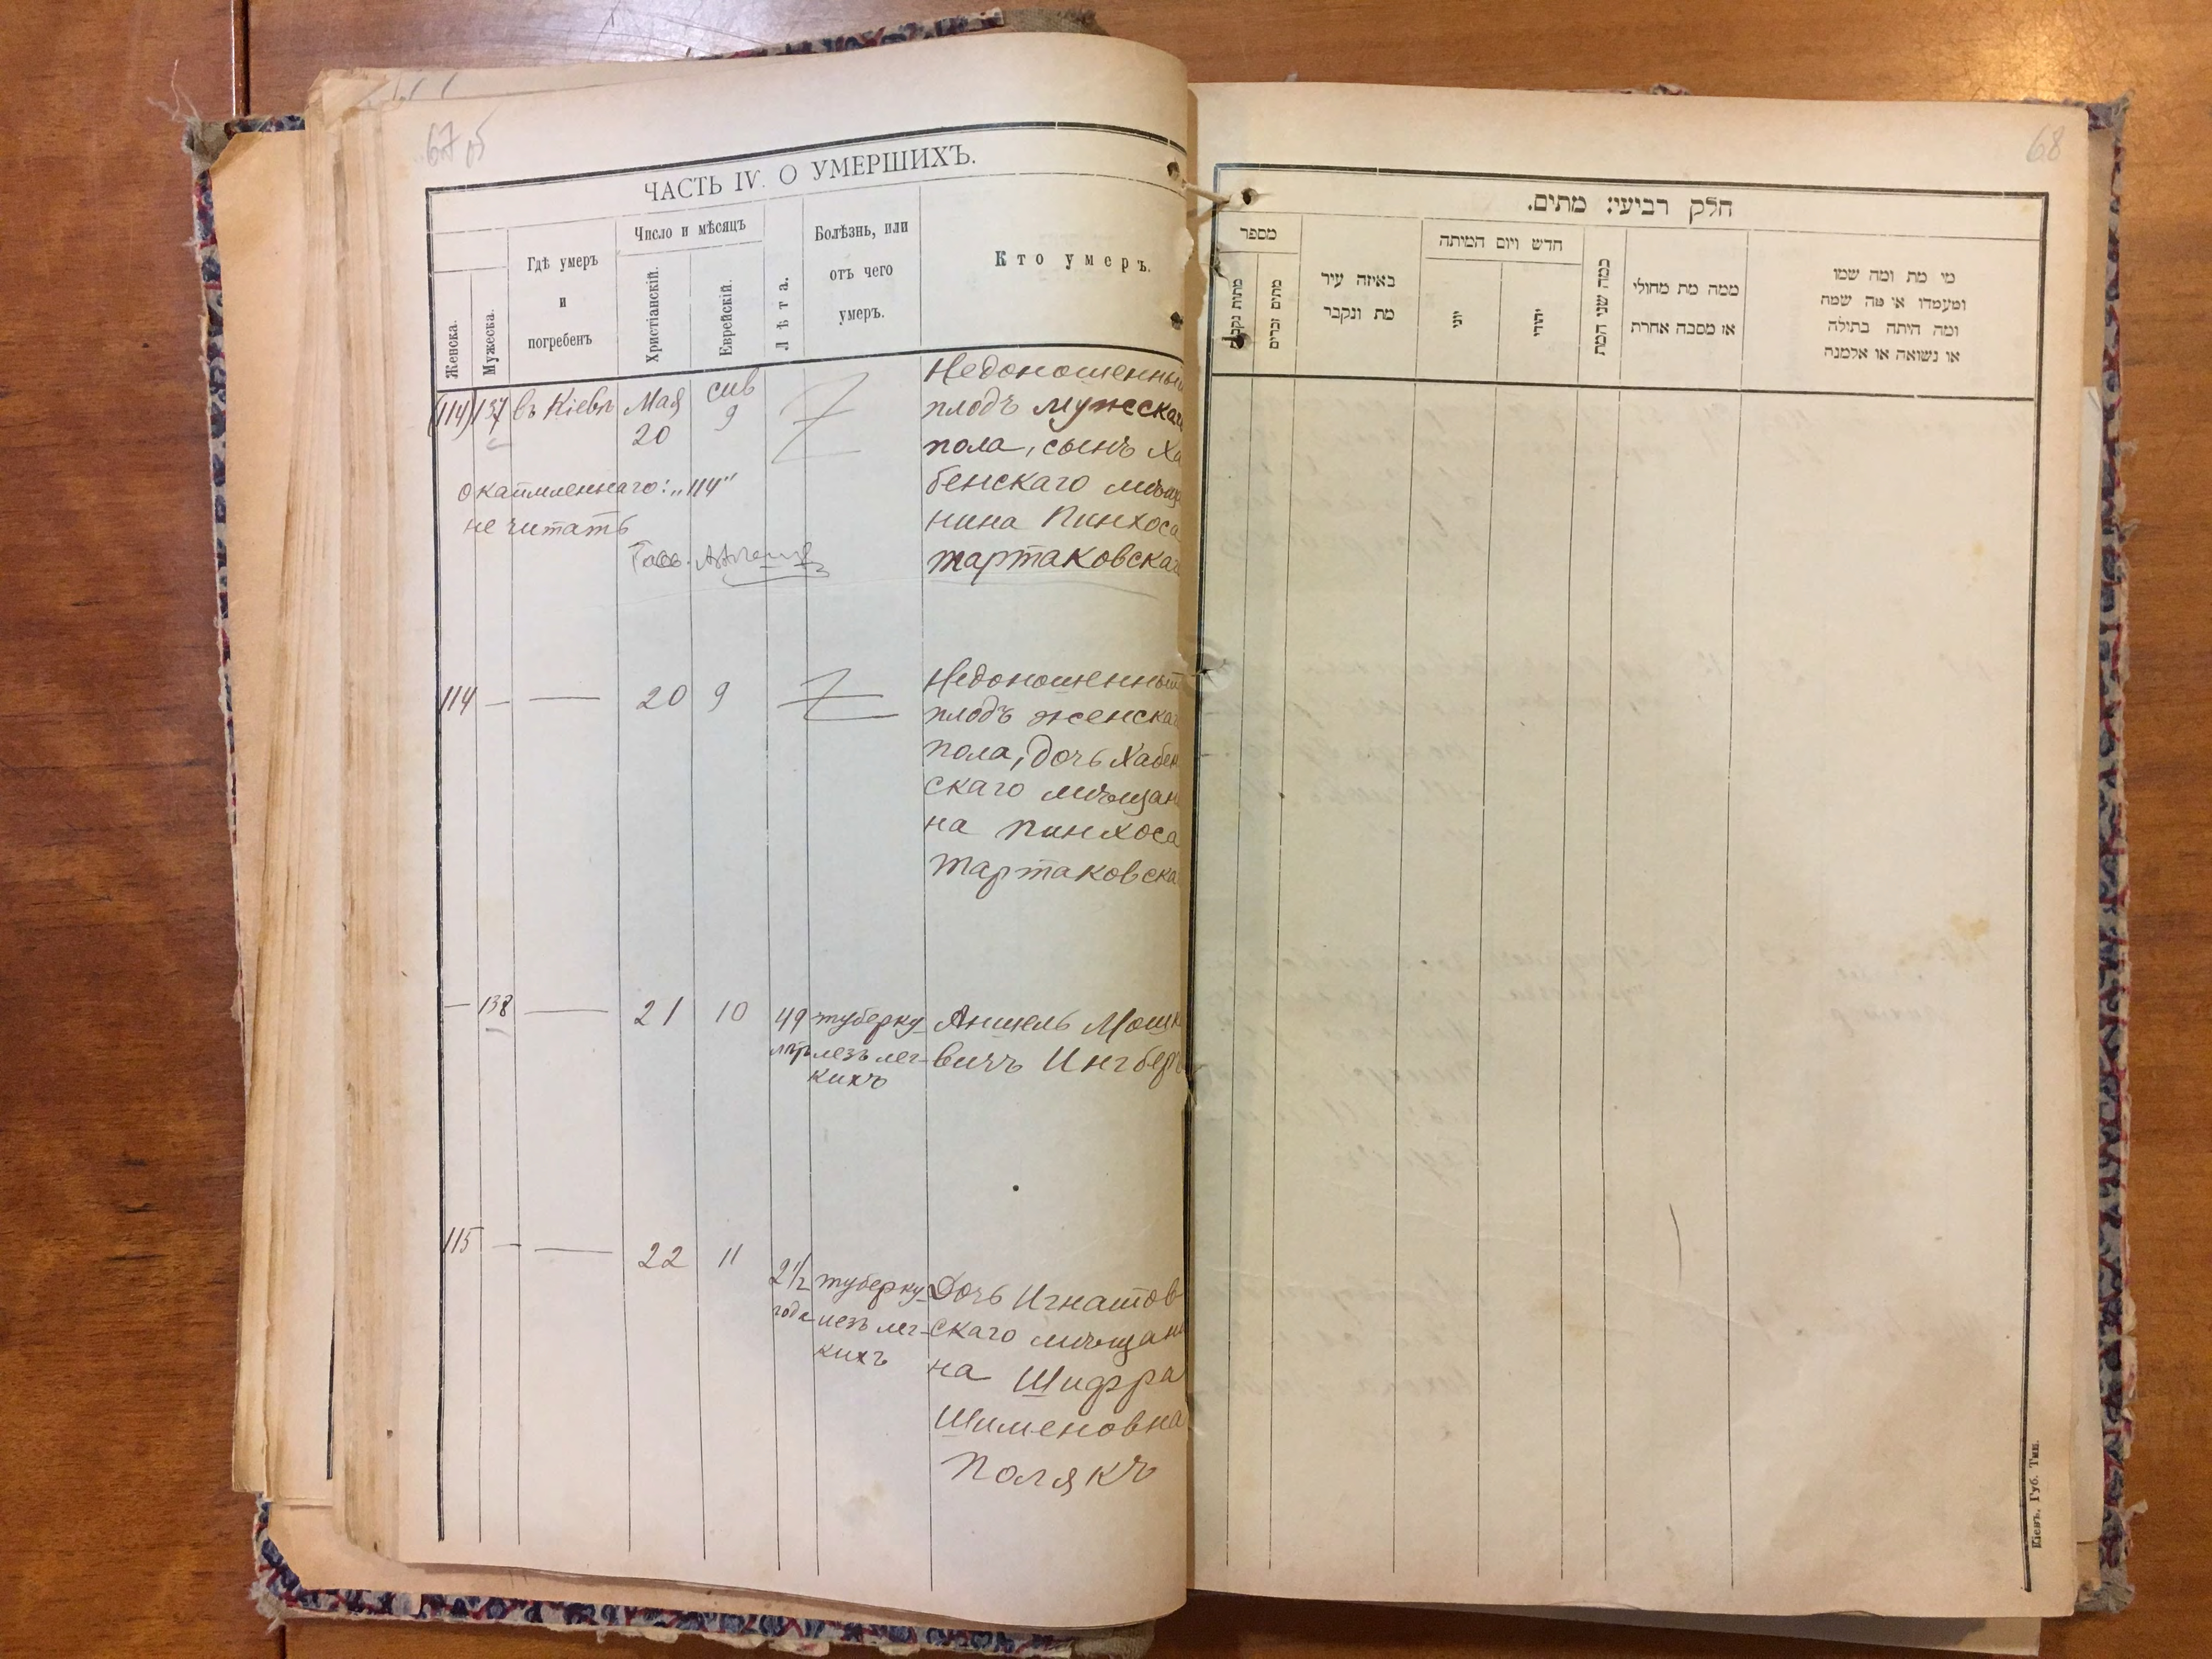 67 об
ЧАСТЬ IV. О УМЕРШИХЪ.
Женска.
Мужеска.
Гдѣ умеръ
и
погребенъ
Число и мѣсяцъ
Христіанскій.
Еврейскій.
Лѣта.
Болѣзнь, или
отъ чего
умеръ.
Кто умеръ.
(114) 137 въ Кіевѣ Мая 20 сив 9
Недоношенный
плодъ мужскаго
пола, сынъ Ха
бенскаго мѣща
нина Пинхоса
Тартаковскаг
окаймленнаго: „114"
не читать
114 — — 20 9
Недоношенный
плодъ женска
пола, дочь Хабен
скаго мѣщан
на Пинхоса
Тартаковска
— 138 — 21 10 49 лѣтъ
туберку
лезъ лег
кихъ
Аншель Мошк
вичъ Ингберъ
115 — — 22 11 2½ года
туберку
лезъ лег
кихъ
Дочь Игнатов
скаго мѣщани
на Шифра
Шименовна
Полякъ
68
חלק רביעי: מתים.
מספר
מתות נקבות
מתים זכרים
באיזה עיר
מת ונקבר
חדש ויום המיתה
יוני
יהודי
כמה שני המת
ממה מת מחולי
או מסבה אחרת
מי מת ומה שמו
ומעמדו או מה שמה
ומה היתה בתולה
או נשואה או אלמנה
Кіевъ. Губ. Тип.